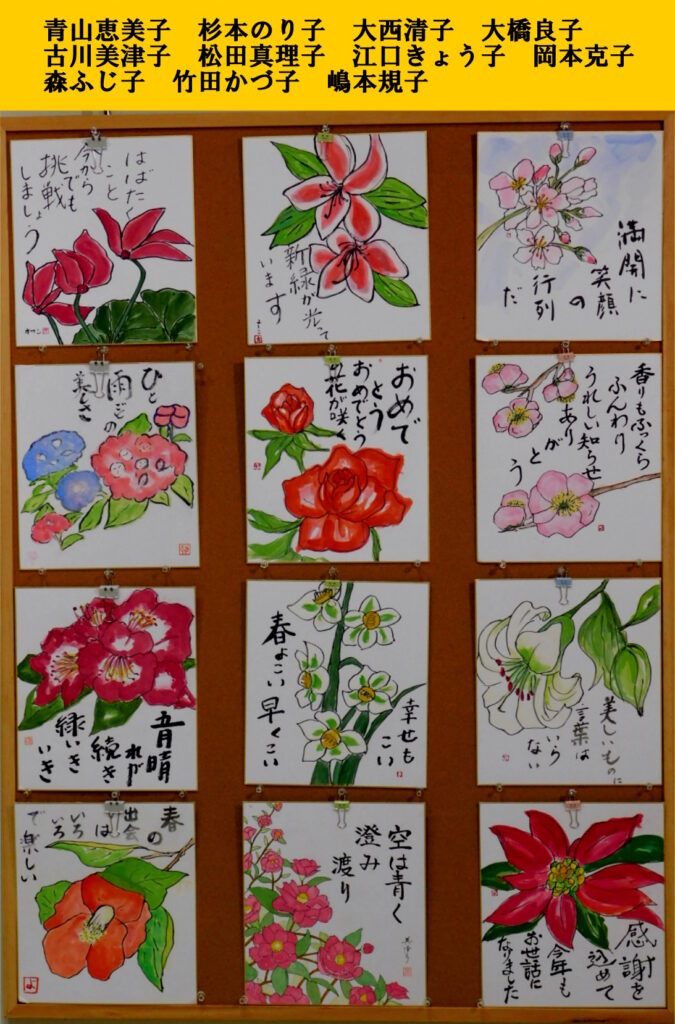 青山恵美子　杉本のり子　大西清子　大橋良子
古川美津子　松田真理子　江口きょう子　岡本克子
森ふじ子　竹田かづ子　嶋本規子
はばたく
こと
今から
でも
挑戦
しましょう
新緑が光って
います
満開に
笑顔
の
行列
だ
ひと
雨ごの
美しさ
おめで
とう
おめでとう
の花が咲く
香りもふっくら
ふんわり
うれしい知らせ
ありがと
う
音晴
れが
続き
緑いき
いき
春よこい早くこい
幸せも
こい
美しいものに
言葉は
いら
ない
春の
出会
は
いろ
いろ
で楽しい
空は青く
澄み
渡り
感謝を
込めて
今年も
お世話に
なりました